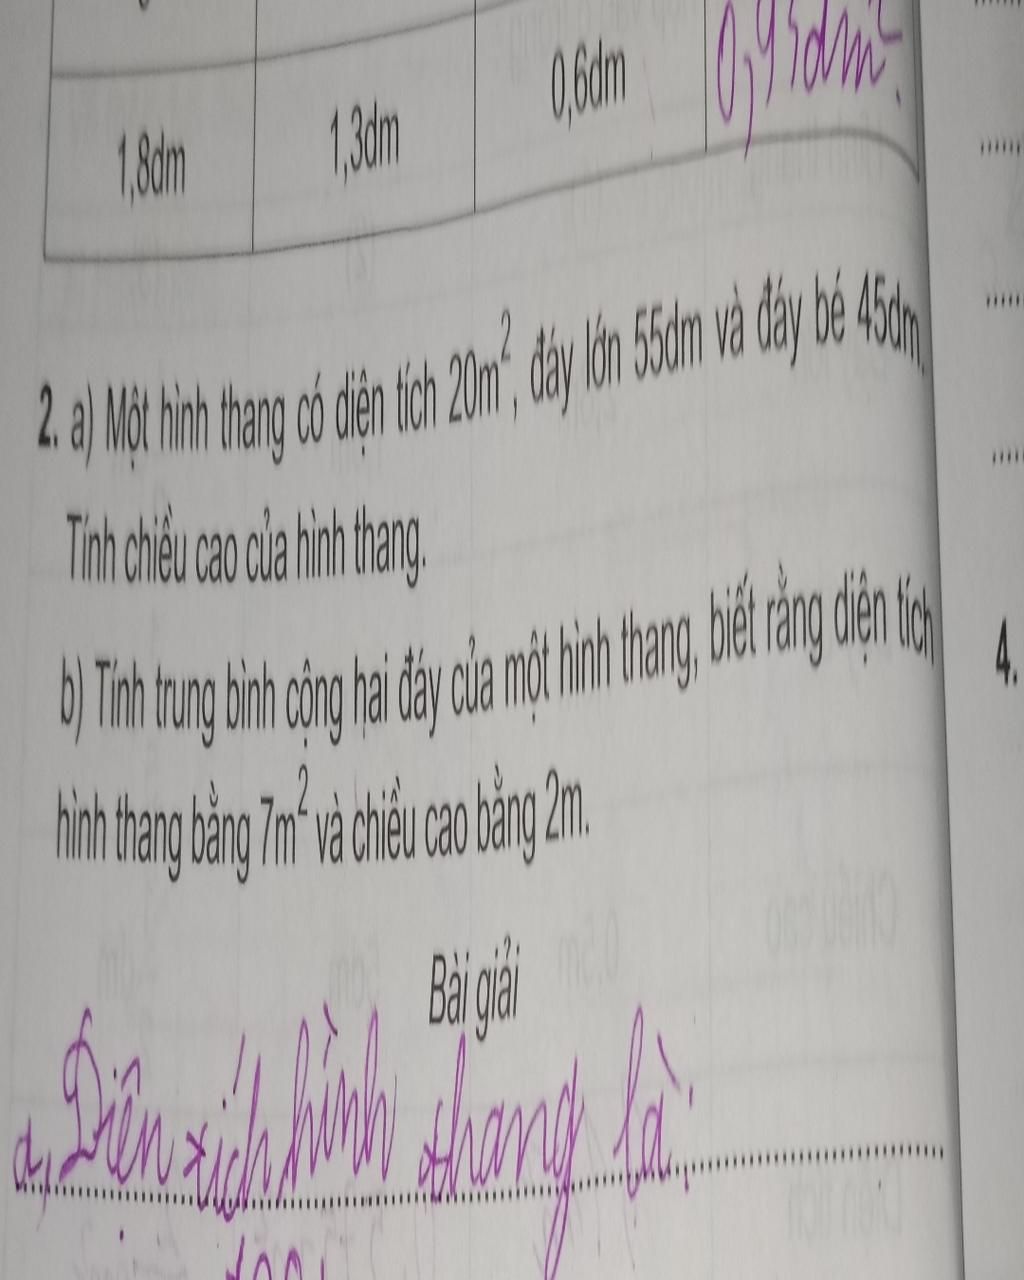 1,8dm 1,3dm 0,6dm 0,93dm².
2. a) Một hình thang có diện tích 20m², đáy lớn 55dm và đáy bé 45dm.
Tính chiều cao của hình thang.
b) Tính trung bình cộng hai đáy của một hình thang, biết rằng diện tích
hình thang bằng 7m² và chiều cao bằng 2m.
4.
Bài giải
a, Diên tích hình thang là: